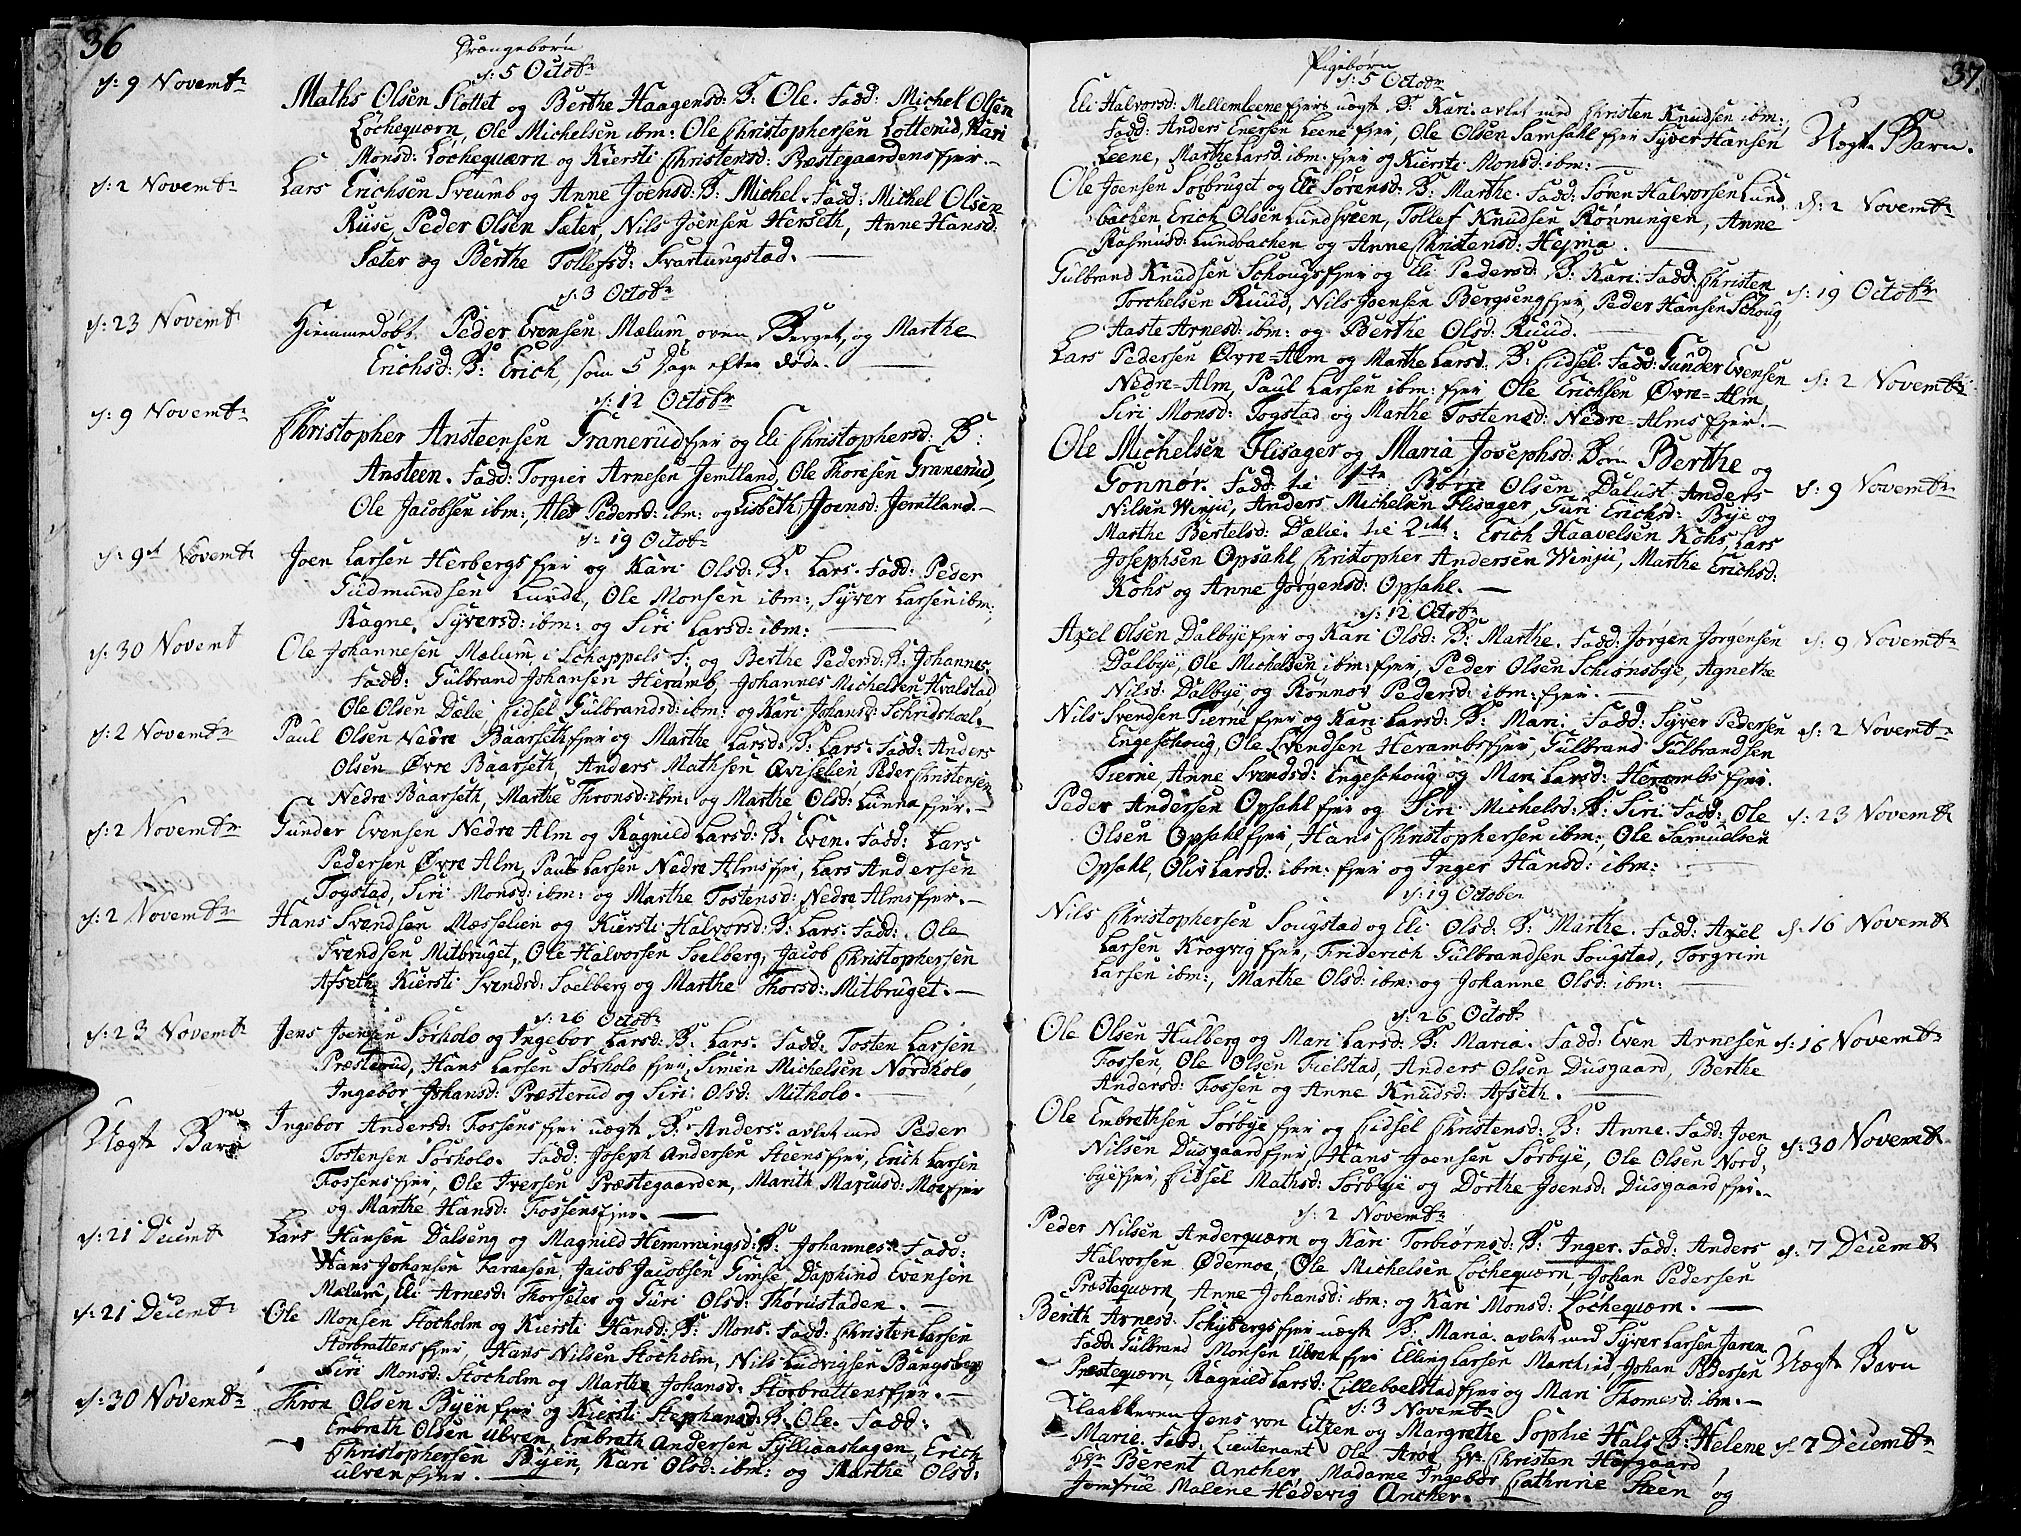 36
Drængebørn
d: 5 Octobr
d: 9 Novembr
Maths Olsen Slottet og Berthe Haagensd: B: Ole. Fadd: Michel Olsen
Løcheqværn, Ole Michelsen ibm: Ole Christophersen Lotterud, Kari
Monsd: Løcheqværn og Kiersti Christensd: Præstegaardens fier.
d: 2 Novembr
Lars Erichsen Sveumb og Anne Joensd: B: Michel. Fadd: Michel Olsen
Ruse, Peder Olsen Sæter, Nils Joensen Herseth, Anne Hansd:
Sæter og Berthe Tollefsd: Svartungstad.
d: 3 Octobr
d: 23 Novembr
Hiemmedøbt Peder Evensen Mælum oven Berget, og Marthe
Erichsd: B: Erich, som 5 Dage efter døde.
d: 12 Octobr
d: 9 Novembr
Christopher Ansteensen Granerud fier og Eli Christophersd: B:
Ansteen. Fadd: Torgier Arnesen Jemtland, Ole Thoresen Granerud,
Ole Jacobsen ibm:, Ales Pedersd: ibm: og Lisbeth Joensd: Jemtland.
d: 19 Octobr
d: 9de Novembr
Joen Larsen Herbergs fier og Kari Olsd: B: Lars. Fadd: Peder
Gudmundsen Lunde, Ole Monsen ibm:, Syver Larsen ibm:,
Ragne Syversd: ibm: og Siri Larsd: ibm:
d: 30 Novembr
Ole Johannesen Mælum i Schappels F: og Berthe Pedersd: B: Johannes
Fadd: Gulbrand Johansen Heramb, Johannes Michelsen Hvalstad
Ole Olsen Dælie Eidsel Gulbrandsd: ibm: og Kari Johansd: Schridshoel.
d: 2 Novembr
Paul Olsen Nedre Baarseth fier og Marthe Larsd: B: Lars. Fadd: Anders
Olsen Øvre Baarseth, Anders Mathsen Qviselien Peder Christensen
Nedre Baarseth, Marthe Thronsd: ibm: og Marthe Olsd: Lunna fier.
d: 2 Novembr
Gunder Evensen Nedre Alm og Ragnild Larsd: B: Even. Fadd: Lars
Pedersen Øvre Alm, Paul Larsen Nedre Alms fier, Lars Andersen
Togstad, Siri Monsd: ibm: og Marthe Tostensd: Nedre Alms fier.
d: 2 Novembr
Hans Svendsen Mæsselien og Kiersti Halvorsd: B: Lars. Fadd: Ole
Svendsen Mitbruget, Ole Halvorsen Soelberg, Jacob Christophersen
Afseth, Kiersti Svendsd: Soelberg og Marthe Thorsd: Mitbruget.
d: 26 Octobr
d: 23 Novembr
Jens Joensen Sørholo og Ingebor Larsd: B: Lars. Fadd: Tosten Larsen
Præsterud, Hans Larsen Sørholo fier, Simen Michelsen Nordholo,
Ingebor Johansd: Præsterud og Siri Olsd: Mitholo.
Uægte Barn
Ingebor Andersd: Fossens fier uægte B: Anders. avlet med Peder
Tostensen Sørholo. Fadd: Joseph Andersen Steens fier, Erich Larsen
Fossens fier, Ole Iversen Præstegaarden, Marith Mariusd: Moe fier
og Marthe Hansd: Fossens fier.
d: 21 Decembr
Lars Hansen Dalseng og Magnild Hemmingsd: B: Johannes. Fadd:
Hans Johansen Faraasen, Jacob Jacobsen Gimse, Daphind Evensen
Mælum, Eli Arnesd: Thorsæter og Guri Olsd: Thorustaden.
d: 21 Decembr
Ole Monsen Stocholm og Kiersti Hansd: B: Mons. Fadd: Christen Larsen
Storbrattens fier, Hans Nilsen Stocholm, Nils Ludvigsen Bangsberg
Siri Monsd: Stocholm og Marthe Johansd: Storbrattens fier.
d: 30 Novembr
Thron Olsen Byen fier og Kiersti Stephansd: B: Ole. Fadd:
Embreth Olsen Ulven, Embreth Andersen Sylliaashagen, Erich
Christophersen Byen, Kari Olsd: ibm: og Marthe Olsd:
Ulven fier.
37.
Pigebørn
d: 5 Octobr
Eli Halvorsd: Mellem Leene fiers uægte B: Kari avlet med Christen Knudsen ibm:,
Fadd: Anders Enersen Leene fier, Ole Olsen Samsahl fier Syver Hansen
Leene, Marthe Larsd: ibm: fier og Kiersti Monsd: ibm:
Uægte Barn.
Ole Joensen Sorbruget og Eli Sørensd: B: Marthe. Fadd: Søren Halvorsen Lund
bachen Erich Olsen Lundsveen, Tollef Knudsen Rønningen, Anne
Rasmusd: Lundbachen og Anne Christensd: Hejma.
d: 2 Novembr
Gulbrand Knudsen Schougs fier og Eli Pedersd: B: Kari. Fadd: Christen
Torchelsen Ruud, Nils Joensen Bergseng fier, Peder Hansen Schoug,
Aaste Arnesd: ibm: og Berthe Olsd: Ruud.
d: 19 Octobr
Lars Pedersen Øvre=Alm og Marthe Larsd: B: Eidsel. Fadd: Gunder Evensen
Nedre=Alm, Paul Larsen ibm: fier Ole Erichsen Øvre=Alm,
Siri Monsd: Togstad og Marthe Tostensd: Nedre=Alms fier.
d: 2 Novembr
Ole Michelsen Flisager og Maria Josephsd: Børn Berthe og
Gonnor. Fadd: til 1ste: Børre Olsen Dalust, Anders
Nilsen Winju, Anders Michelsen Flisager, Guri Erichsd: Bye og
Marthe Bertelsd: Dælie. til 2det: Erich Haavelsen Kohs, Lars
Josephsen Opsahl Christopher Andersen Winju, Marthe Erichsd:
Kohs og Anne Jørgensd: Opsahl.
d: 9 Novembr
d: 12 Octobr
Axel Olsen Dalbye fier og Kari Olsd: B: Marthe. Fadd: Jørgen Jørgensen
Dalbye, Ole Michelsen ibm: fier, Peder Olsen Schiønsbye, Agnethe
Nilsd: Dalbye og Ronnov Pedersd: ibm: fier.
d: 9 Novembr
Nils Svendsen Tierne fier og Kari Larsd: B: Mari. Fadd: Syver Pedersen
Engeschoug, Ole Svendsen Herambs fier, Gulbrand Gulbrandsen
Tierne Anne Svendsd: Engeschoug og Mari Larsd: Herambs fier.
d: 2 Novembr
Peder Andersen Opsahl fier og Siri Michelsd: B: Siri. Fadd: Ole
Olsen Opsahl fier, Hans Christophersen ibm:, Ole Samuelsen
Opsahl, Oliv Larsd: ibm: fier og Inger Hansd: ibm:
d: 23 Novembr
d: 19 October
Nils Christophersen Sougstad og Eli Olsd: B: Marthe. Fadd: Axel
Larsen Krogvig fier, Friderich Gulbrandsen Sougstad, Torgrim
Larsen ibm:, Marthe Olsd: ibm: og Johanne Olsd: ibm:
d: 16 Novembr
d: 26 Octobr
Ole Olsen Hulberg og Mari Larsd: B: Maria. Fadd: Even Arnesen
Fossen, Ole Olsen Fielstad, Anders Olsen Dusgaard, Berthe
Andersd: Fossen og Anne Knudsd: Afseth.
d: 16 Novembr
Ole Embrethsen Sørbye fier og Eidsel Christensd: B: Anne. Fadd: Joen
Nilsen Dusgaard fier, Hans Joensen Sørbye, Ole Olsen Nord
bye fier, Eidsel Mathsd: Sørbye og Dorthe Joensd: Dusgaard fier.
d: 30 Novembr
d: 2 Novembr
Peder Nilsen Anderqværn og Kari Torbiørnsd: B: Inger. Fadd: Anders
Halvorsen Ødemoe, Ole Michelsen Løcheqværn, Johan Pedersen
Præsteqværn, Anne Johansd: ibm: og Kari Monsd: Løcheqværn.
d: 7 Decembr
Berith Arnesd: Schybergs fier uægte B: Maria. avlet med Syver Larsen Jaren
Fadd: Gulbrand Monsen Ulven fier Elling Larsen Marchiud, Johan Pedersen
Præsteqværn, Ragnild Larsd: Lilleboelstad fier og Mari Thomesd: ibm:
Uægte Barn
d: 3 Novembr
Klaakkeren Jens von Eitzen og Margrethe Sophie Hals B: Helene
Marie. Fadd: Lieutenant Ole Aroe Hr: Christen Hofgaard
Hr: Berent Ancher, Madame Ingebor Cathrine Steen og
Jomfrue Malene Hedevig Ancher.
d: 7 Decembr